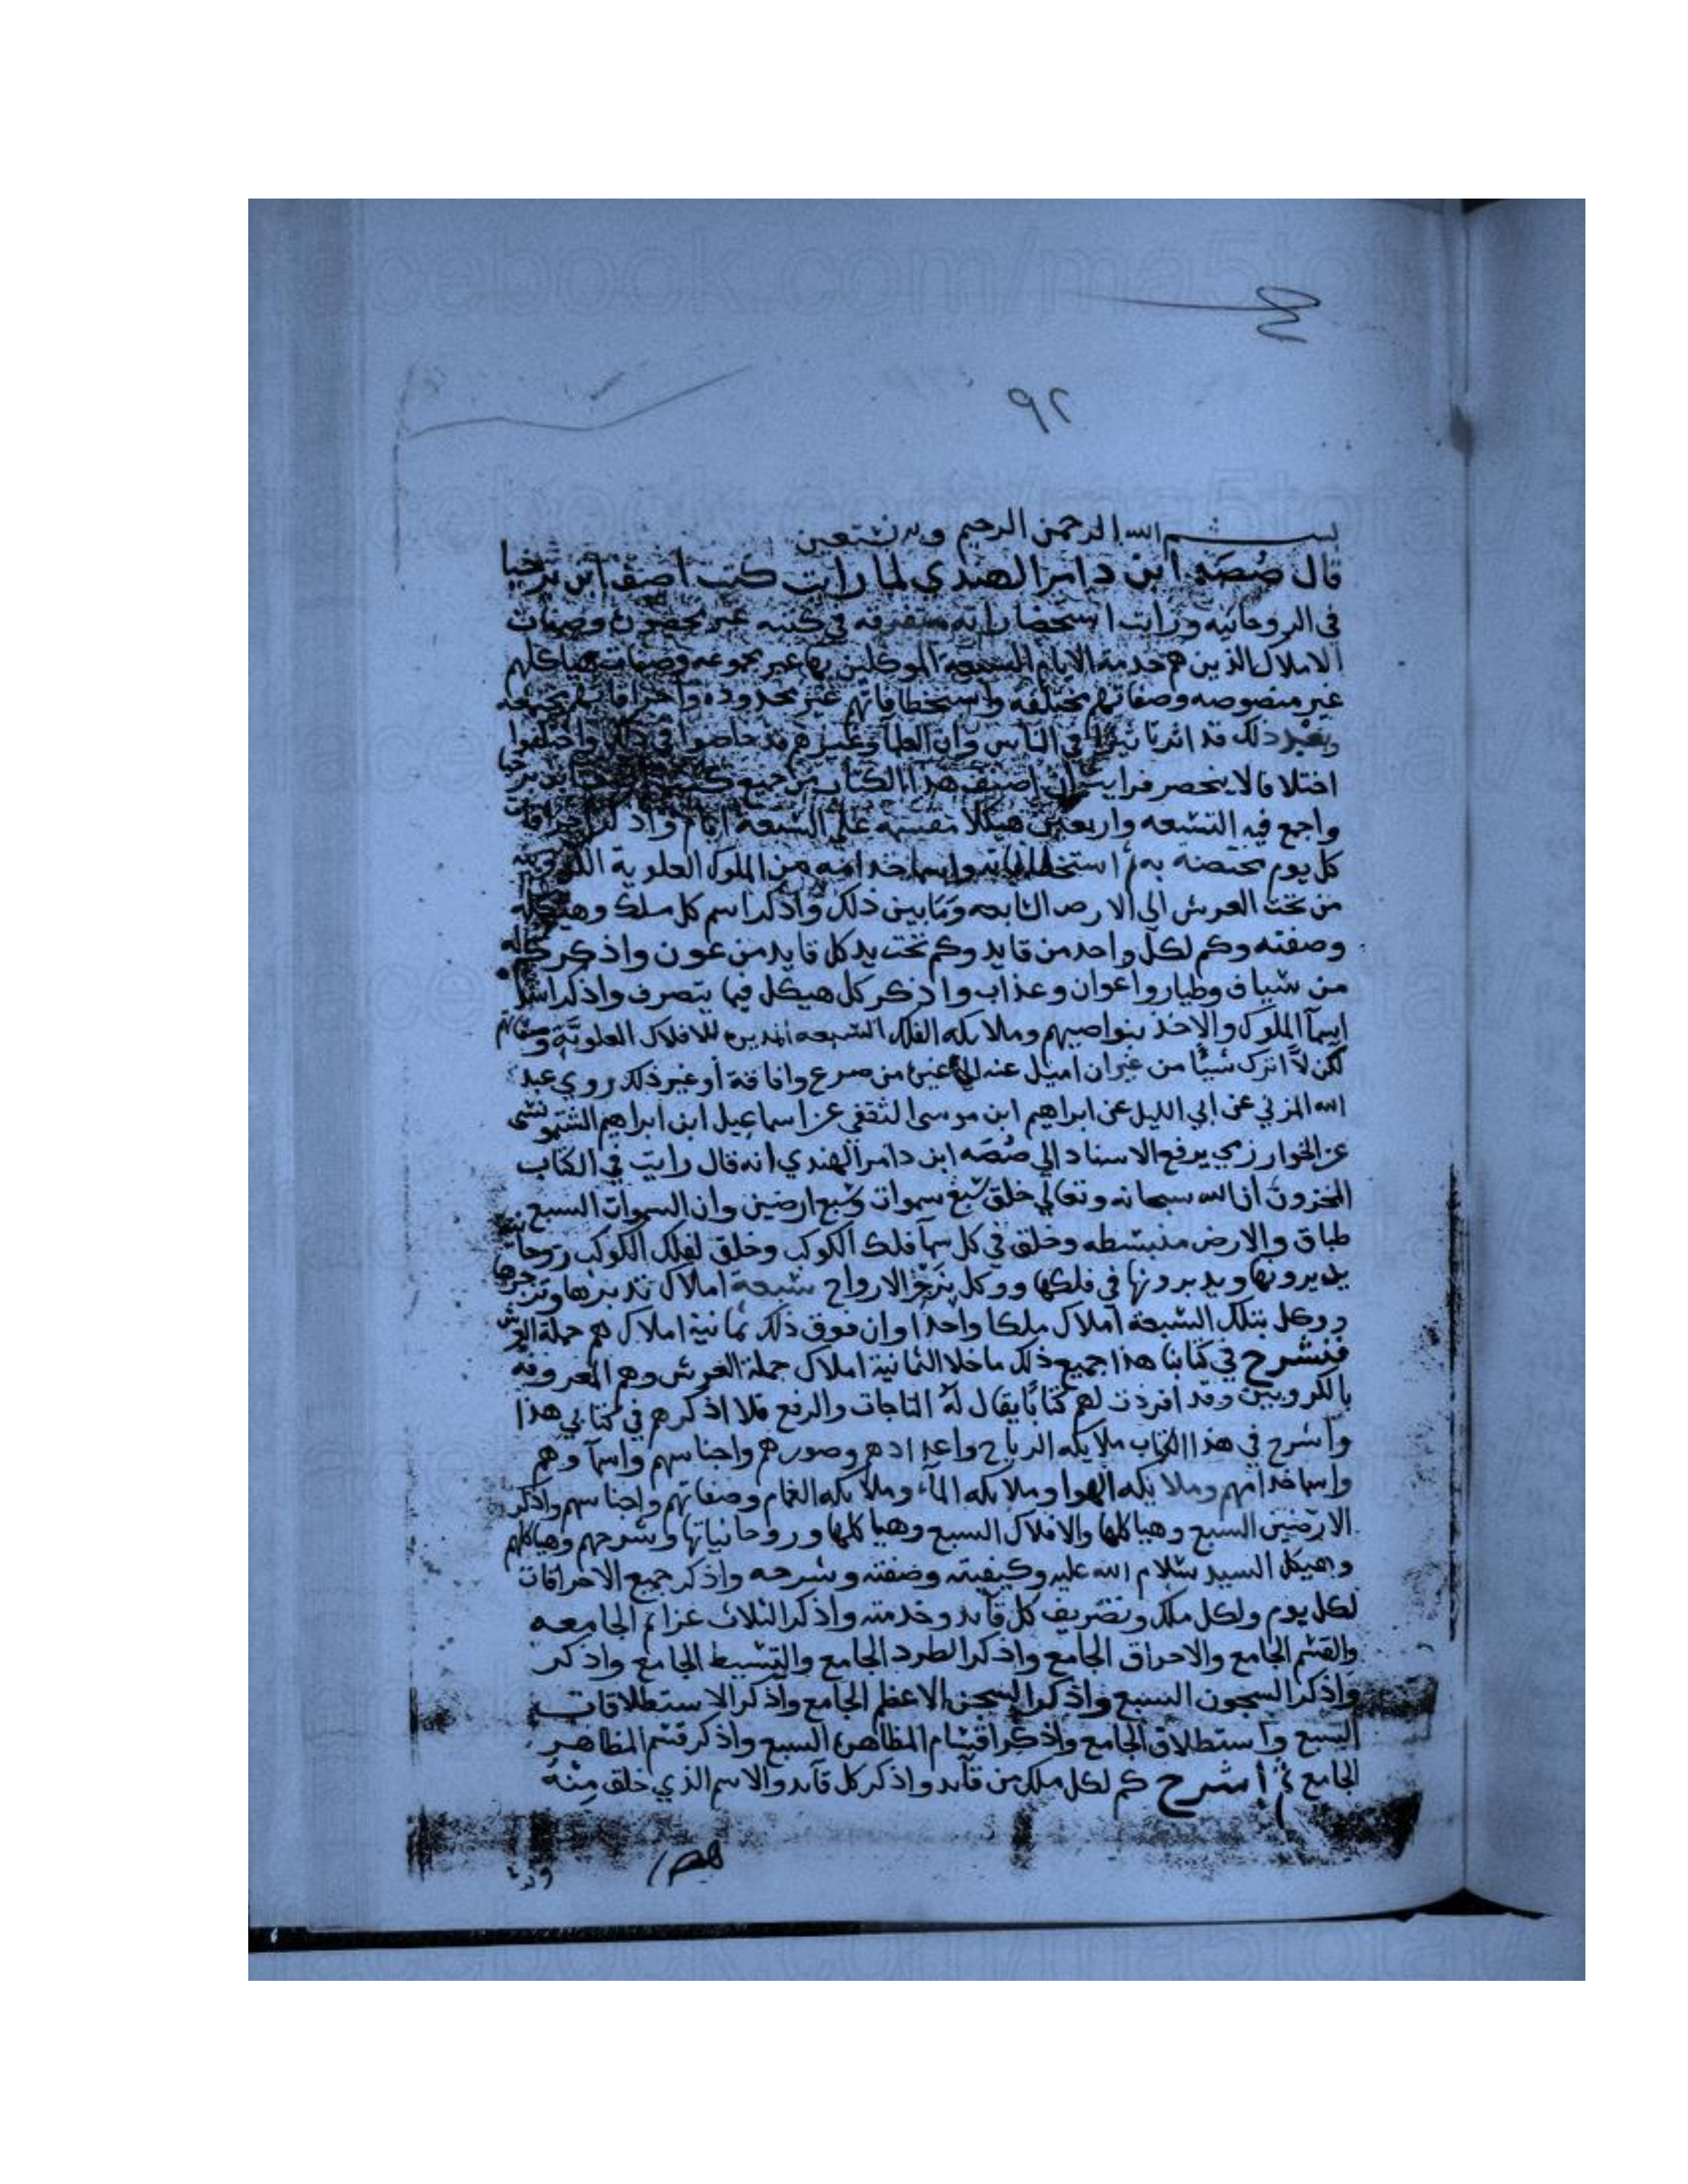 ٩٢
بسم الله الرحمن الرحيم وبه نستعين
قال صُصَه ابن دامر الهندي لما رايت كتب اصف ابن برخيا
في الروحانيه ورايت استحضاراته متفرقه في كتبه غير وصفات
الاملاك الذين هم خدمة الايام السبعه الموكلين بها غير مجموعه وصفات هياكلهم
غير منصوصه وصفاتهم مختلفه واستخطافاتهم غير محدوده واحراقاتهم
وبعد ذلك قد اثرتا في الناس وان العلما وغيرهم قد خاضوا في ذلك واختلفوا
اختلافا لا ينحصر فرايت ان اصنف هذا الكتاب من جميع كتب
واجمع فيه التسعه واربعين هيكلا مقسمه على السبعة ايام واذكر احراقات
كل يوم مختصة به واسما خدامه من الملوك العلوية
من تحت العرش الي الارض السابعه وما بين ذلك واذكر اسم كل ملك وهيكله
وصفته وكم لكل واحد من قايد وكم تحت يد كل قايد من عون واذكر كم له
من سياف وطيار واعوان وعذاب واذكر كل هيكل فيما يتصرف واذكر
اسمآ الملوك والاخذ بنواصيهم وملايكه الفلك السبعه المديره للافلاك العلويَّة
لكن لا اترك شيًا من غير ان اميل عنه من صرع وافاقة او غير ذلك روي عبد
الله المزني عن ابي الليل عن ابراهيم ابن موسى الثقفي عن اسماعيل ابن ابراهيم
عن الخوارزمي يرفع الاسناد الي صُصَه ابن دامر الهندي انه قال رايت في الكتاب
المخزون ان الله سبحانه وتعالي خلق سبع سموات وسبع ارضين وان السموات السبع
طباق والارض منبسطه وخلق في كل سمآ فلك الكوكب وخلق لفلك الكوكب روحانية
يديرونها ويدبرونها في فلكها ووكل الارواح سبعة املاك تدبرها
ووكل بتلك السبعة املاك ملكا واحدا وان فوق ذلك ثمانية املاك هم حملة العرش
فنشرح في كتابنا هذا جميع ذلك ما خلا الثمانية املاك حملة العرش وهم المعروفة
بالكروبيين وقد افردت لهم كتابًا يقال له التاجات والرفع فلا اذكرهم في كتابي هذا
واشرح في هذا الكتاب ملايكه الرياح واعدادهم وصورهم واجناسهم واسمآوهم
واسما خدامهم وملايكه الهوا وملايكه المآء وملايكه الغمام وصفاتهم واجناسهم واذكر
الارضين السبع وهياكلها والافلاك السبع وهياكلها وروحانياتها وشرحهم وهياكلهم
وهيكل السيد سلام الله عليه وكيفيته وصفته وشرحه واذكر جميع الاحراقات
لكل يوم ولكل ملك وتصريف كل قآيد وخدمته واذكر الثلاث عزايم الجامعه
والقسم الجامع والاحراق الجامع واذكر الطرد الجامع والتسيط الجامع واذكر
واذكر السجون السبع واذكر السجن الاعظم الجامع واذكر الاستطلاقات
السبع واستطلاق الجامع واذكر اقسام المظاهره السبع واذكر قسم المظاهر
الجامع ثم اشرح كم لكل ملك من قآيد واذكر كل قآيد والاسم الذي خلق منه